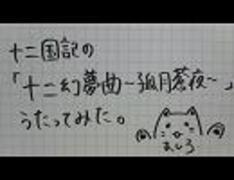 十二国記の
「十二幻夢曲〜孤月蒼夜〜」
うたってみた。
ましろ